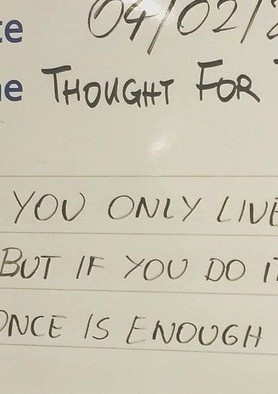 te 04/02/2
e THOUGHT FOR T
YOU ONLY LIVE
BUT IF YOU DO IT
ONCE IS ENOUGH